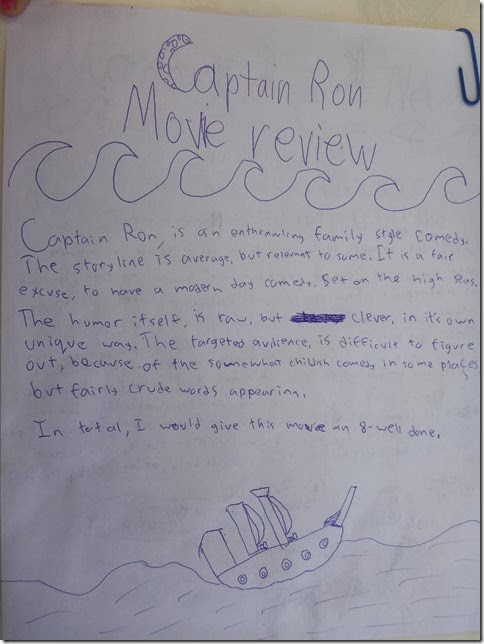 Captain Ron
Movie review
Captain Ron, is an enthrawling family style comedy.
The storyline is average, but relevant to some. It is a fair
excuse, to have a modern day comedy. Set on the high seas.
The humor itself, is raw, but clever, in it's own
unique way. The targeted audience, is difficult to figure
out, because of the somewhat childish comedy in some places,
but fairly crude words appearing.
In total, I would give this movie an 8-well done.